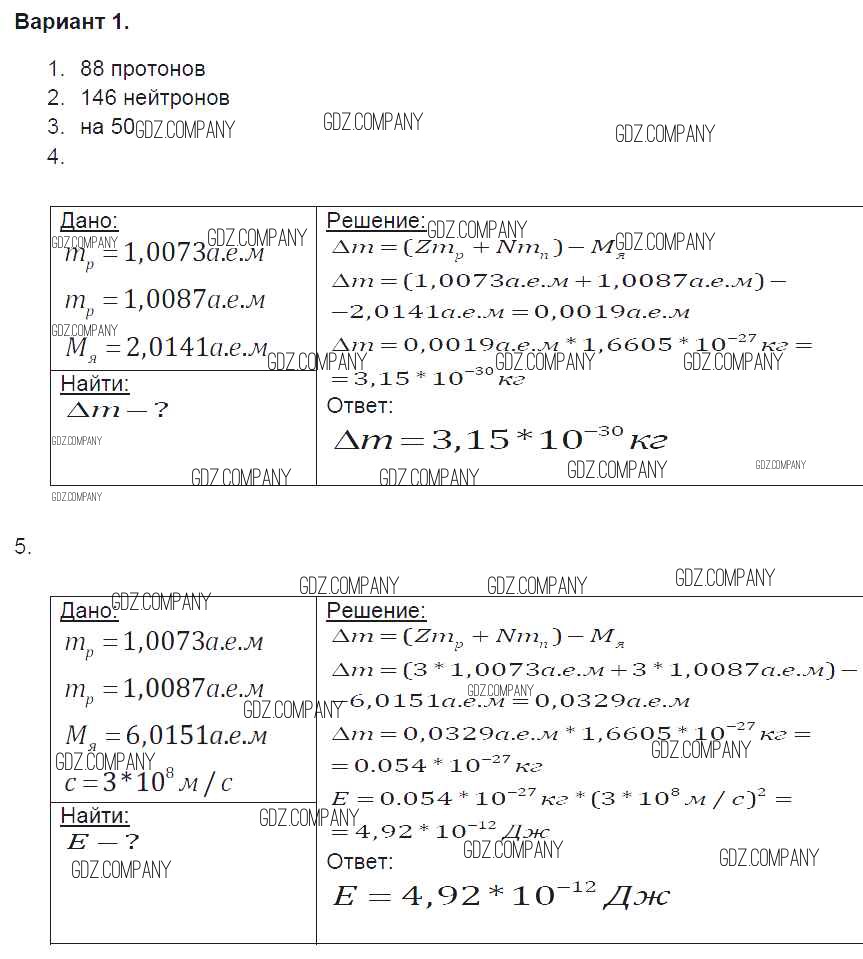 Вариант 1.
1. 88 протонов
2. 146 нейтронов
3. на 50
GDZ.COMPANY GDZ.COMPANY GDZ.COMPANY
4.
Дано:
GDZ.COMPANY GDZ.COMPANY
m_p = 1,0073а.е.м
m_p = 1,0087а.е.м
GDZ.COMPANY
M_я = 2,0141а.е.м
GDZ.COMPANY
Найти:
Δm − ?
GDZ.COMPANY
GDZ.COMPANY
GDZ.COMPANY
Решение:
GDZ.COMPANY
Δm = (Zm_p + Nm_n) − M_я
GDZ.COMPANY
Δm = (1,0073а.е.м + 1,0087а.е.м) −
−2,0141а.е.м = 0,0019а.е.м
Δm = 0,0019а.е.м * 1,6605 * 10^−27 кг =
GDZ.COMPANY GDZ.COMPANY
= 3,15 * 10^−30 кг
Ответ:
Δm = 3,15 * 10^−30 кг
GDZ.COMPANY GDZ.COMPANY GDZ.COMPANY
5.
GDZ.COMPANY GDZ.COMPANY GDZ.COMPANY
Дано:
GDZ.COMPANY
m_p = 1,0073а.е.м
m_p = 1,0087а.е.м
GDZ.COMPANY
M_я = 6,0151а.е.м
GDZ.COMPANY
c = 3 * 10^8 м / с
Найти:
GDZ.COMPANY
E − ?
GDZ.COMPANY
Решение:
Δm = (Zm_p + Nm_n) − M_я
Δm = (3 * 1,0073а.е.м + 3 * 1,0087а.е.м) −
GDZ.COMPANY
−6,0151а.е.м = 0,0329а.е.м
Δm = 0,0329а.е.м * 1,6605 * 10^−27 кг =
GDZ.COMPANY
= 0.054 * 10^−27 кг
E = 0.054 * 10^−27 кг * (3 * 10^8 м / с)^2 =
= 4,92 * 10^−12 Дж
GDZ.COMPANY GDZ.COMPANY
Ответ:
E = 4,92 * 10^−12 Дж